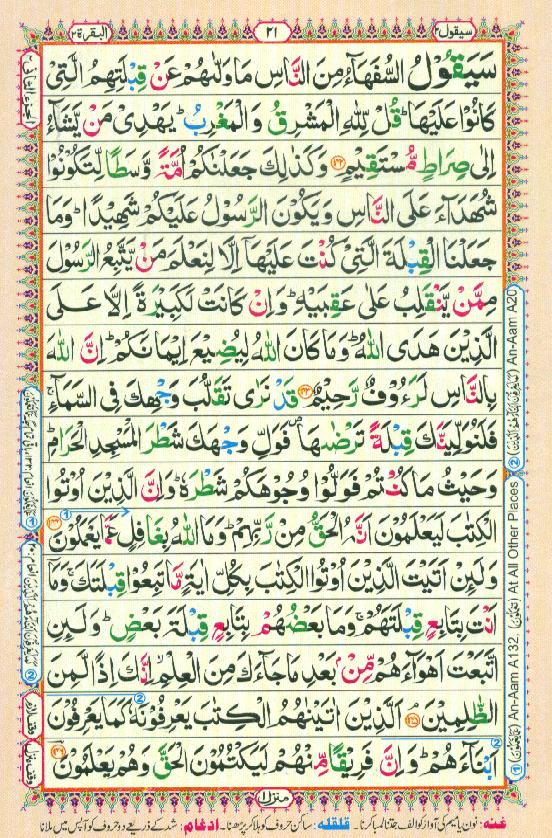 سيقول٢
٢١
البقرة٢
سَيَقُوْلُ السُّفَهَآءُ مِنَ النَّاسِ مَا وَلّٰىهُمْ عَنْ قِبْلَتِهِمُ الَّتِىْ
كَانُوْا عَلَيْهَا ؕ قُلْ لِّلّٰهِ الْمَشْرِقُ وَ الْمَغْرِبُ ؕ يَهْدِىْ مَنْ يَّشَآءُ
اِلٰى صِرَاطٍ مُّسْتَقِيْمٍ ﴿۱۴۲﴾ وَ كَذٰلِكَ جَعَلْنٰكُمْ اُمَّةً وَّسَطًا لِّتَكُوْنُوْا
شُهَدَآءَ عَلَى النَّاسِ وَ يَكُوْنَ الرَّسُوْلُ عَلَيْكُمْ شَهِيْدًا ؕ وَ مَا
جَعَلْنَا الْقِبْلَةَ الَّتِىْ كُنْتَ عَلَيْهَاۤ اِلَّا لِنَعْلَمَ مَنْ يَّتَّبِعُ الرَّسُوْلَ
مِمَّنْ يَّنْقَلِبُ عَلٰى عَقِبَيْهِ ؕ وَ اِنْ كَانَتْ لَكَبِيْرَةً اِلَّا عَلَى
الَّذِيْنَ هَدَى اللّٰهُ ؕ وَ مَا كَانَ اللّٰهُ لِيُضِيْعَ اِيْمَانَكُمْ ؕ اِنَّ اللّٰهَ
بِالنَّاسِ لَرَءُوْفٌ رَّحِيْمٌ ﴿۱۴۳﴾ قَدْ نَرٰى تَقَلُّبَ وَجْهِكَ فِى السَّمَآءِ ۚ
فَلَنُوَلِّيَنَّكَ قِبْلَةً تَرْضٰىهَا ۪ فَوَلِّ وَجْهَكَ شَطْرَ الْمَسْجِدِ الْحَرَامِ ؕ
وَ حَيْثُ مَا كُنْتُمْ فَوَلُّوْا وُجُوْهَكُمْ شَطْرَهٗ ؕ وَ اِنَّ الَّذِيْنَ اُوْتُوا
الْكِتٰبَ لَيَعْلَمُوْنَ اَنَّهُ الْحَقُّ مِنْ رَّبِّهِمْ ؕ وَ مَا اللّٰهُ بِغَافِلٍ عَمَّا يَعْمَلُوْنَ ﴿۱۴۴﴾
وَ لَئِنْ اَتَيْتَ الَّذِيْنَ اُوْتُوا الْكِتٰبَ بِكُلِّ اٰيَةٍ مَّا تَبِعُوْا قِبْلَتَكَ ۚ وَ مَاۤ
اَنْتَ بِتَابِعٍ قِبْلَتَهُمْ ۚ وَ مَا بَعْضُهُمْ بِتَابِعٍ قِبْلَةَ بَعْضٍ ؕ وَ لَئِنِ
اتَّبَعْتَ اَهْوَآءَهُمْ مِّنْۢ بَعْدِ مَا جَآءَكَ مِنَ الْعِلْمِ ۙ اِنَّكَ اِذًا لَّمِنَ
الظّٰلِمِيْنَ ﴿۱۴۵﴾ اَلَّذِيْنَ اٰتَيْنٰهُمُ الْكِتٰبَ يَعْرِفُوْنَهٗ كَمَا يَعْرِفُوْنَ
اَبْنَآءَهُمْ ؕ وَ اِنَّ فَرِيْقًا مِّنْهُمْ لَيَكْتُمُوْنَ الْحَقَّ وَ هُمْ يَعْلَمُوْنَ ﴿۱۴۶﴾
منزل ۱
غنه: نون یا میم کی آواز کو الف جتنا لمبا کرنا۔ قلقله: ساکن حروف کو ہلا کر پڑھنا۔ ادغام: شد کے ذریعے دو حروف کو آپس میں ملانا
① An-Aam A132 At All Other Places ② An-Aam A20